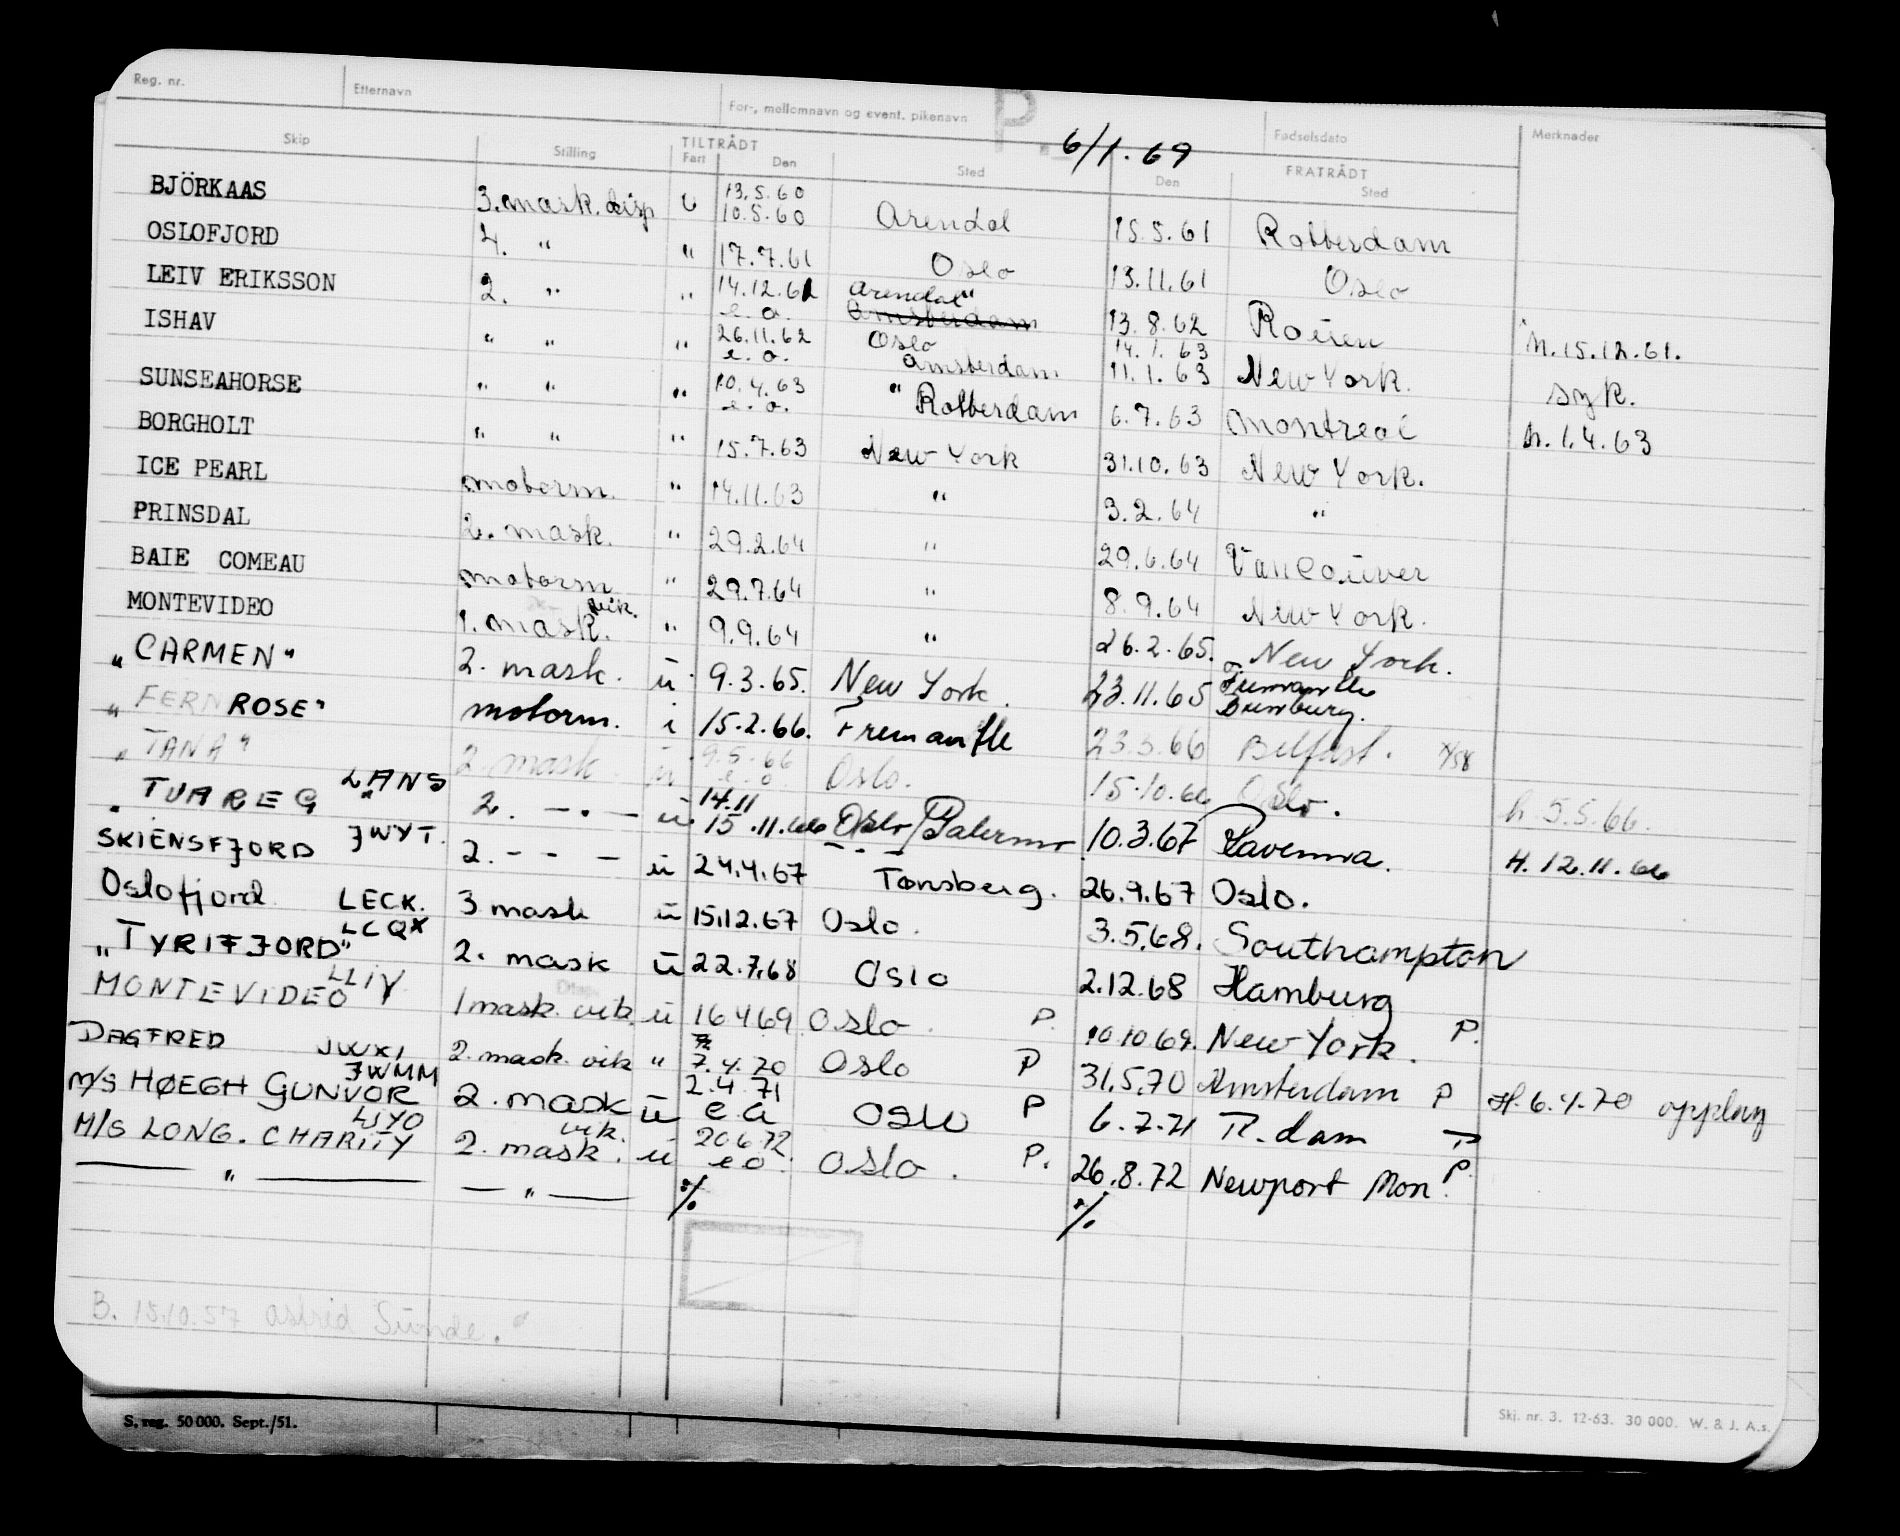 Reg. nr. Etternavn For-, mellomnavn og event. pikenavn P 6/1.69 Fødselsdato Merknader
Skip Stilling TILTRÅDT Fart Den Sted FRATRÅDT Den Sted
BJÖRKAAS 3. mask. disp u 13.5.60 10.5.60 Arendal 15.5.61 Rotterdam
OSLOFJORD 4. " " 17.7.61 Oslo 13.11.61 Oslo
LEIV ERIKSSON 2. " " 14.12.61 e.o. Arendal " Amsterdam 13.8.62 Rouen h. 15.12.61.
ISHAV " " " 26.11.62 e.o. Oslo Amsterdam 14.1.63 11.1.63 New York. syk.
SUNSEAHORSE " " " 10.4.63 e.o. " Rotterdam 6.7.63 Montreal h. 1.4.63
BORGHOLT " " " 15.7.63 New York 31.10.63 New York.
ICE PEARL motorm. " 14.11.63 " 3.2.64 "
PRINSDAL 2. mask. " 29.2.64 " 29.6.64 Vancouver
BAIE COMEAU motorm " 29.7.64 " 8.9.64 New York.
MONTEVIDEO 1. mask. vik. " 9.9.64 " 26.2.65. New York.
"CARMEN" 2. mask. u 9.3.65. New York. 23.11.65 Bunbury.
"FERNROSE" motorm. i 15.2.66. Fremantle 23.3.66 Belfast.
"TANA" 2. mask. u 9.5.66 e.o Oslo. 15.10.66 Oslo. h 5.5.66.
"TUAREG LANS 2. — " — u. 14.11 15.11.66 Oslo/Palermo 10.3.67 Ravenna. H. 12.11.66
SKIENSFJORD JWYT. 2. - - - u 24.4.67 Tønsberg. 26.9.67 Oslo.
Oslofjord LECK. 3 mask u 15.12.67 Oslo. 3.5.68. Southampton
"TYRIFJORD" LCQX 2. mask u 22.7.68 Oslo 2.12.68 Hamburg
MONTEVIDEO LLIV 1 mask. vik. u 16 4 69 Oslo. P. 10 10 69. New York. P.
DAGFRED JWXI 2. mask. vik " 7.4.70 Oslo P 31.5.70 Amsterdam P H. 6.4.70 opplag
M/S HØEGH GUNVOR JWMM 2. mask u 2.4.71 e a Oslo P 6.7.71 R.dam P
M/S LONG. CHARITY LIYO 2. mask. vik. u 20 6 72. e o. Oslo. P. 26.8.72 Newport Mon. P.
— " — — " — % %
B. 15.10.57 Astrid Sunde.
S. reg. 50 000. Sept./51. Skj. nr. 3. 12-63. 30 000. W. & J. A.s.